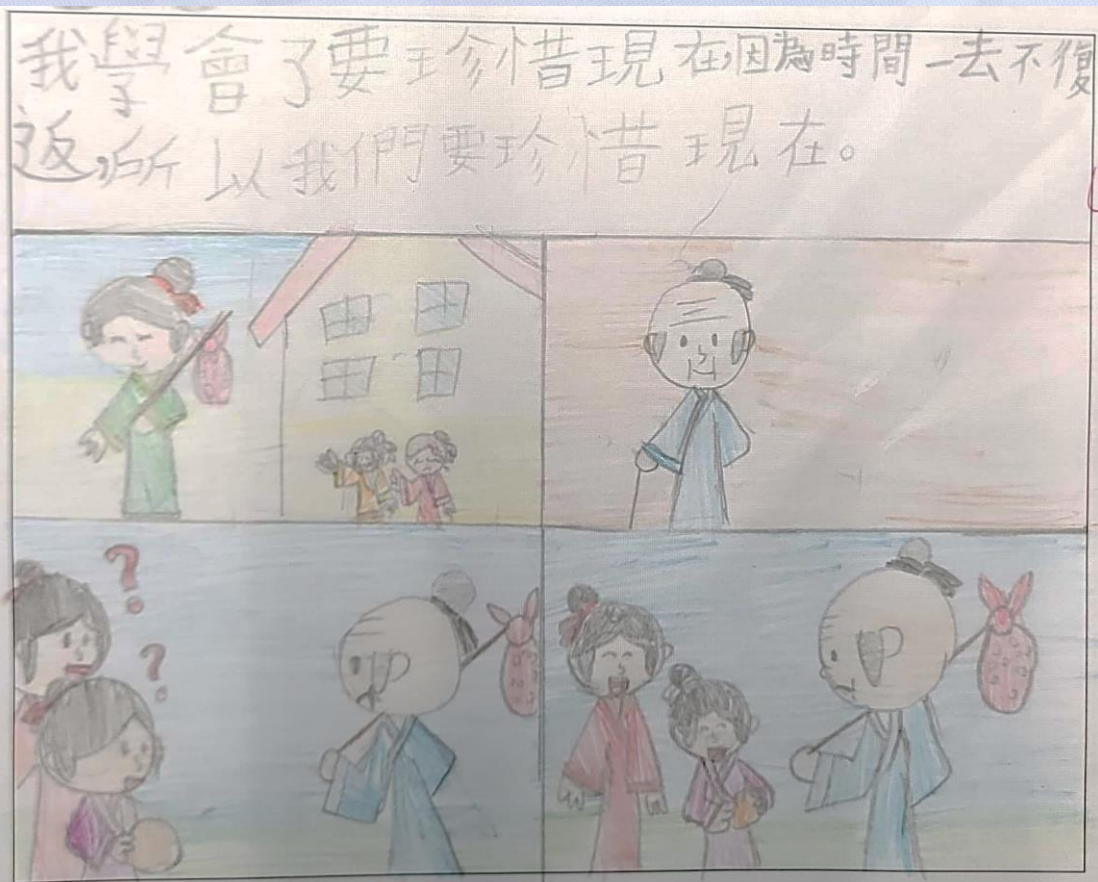 我學會了要珍惜現在,因為時間一去不復
返,所以我們要珍惜現在。
?
?